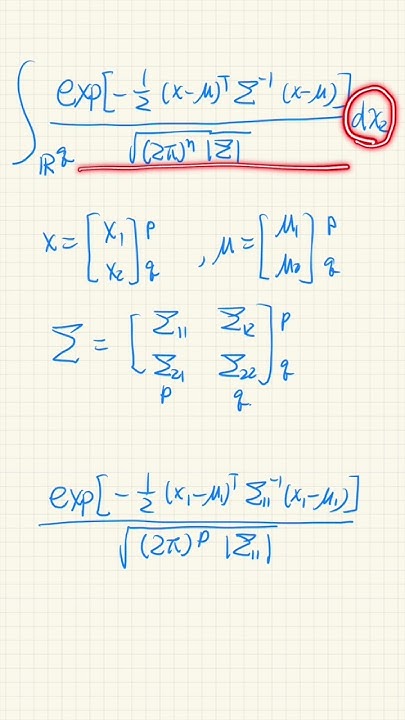 ∫_{ℝ^q} exp[-1/2 (x-μ)^T Σ^{-1} (x-μ)] / √((2π)^n |Σ|) dx_2
x = [x_1; x_2] p q , μ = [μ_1; μ_2] p q
Σ = [Σ_11 Σ_12; Σ_21 Σ_22] p q
p q
exp[-1/2 (x_1-μ_1)^T Σ_11^{-1} (x_1-μ_1)] / √((2π)^p |Σ_11|)